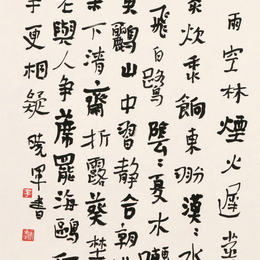 雨空林煙火遲蒸
炊黍餉東菑漠〻水
飛白鷺陰〻夏木囀
黃鸝山中習靜觀朝
松下清齋折露葵野
老與人爭蓆罷海鷗
事更相疑 曉軍書